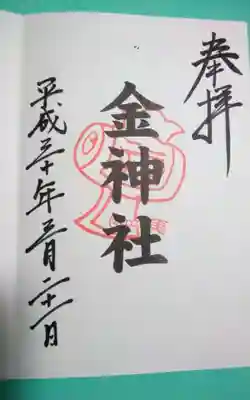 奉拝
金神社
平成三十年三月二十一日